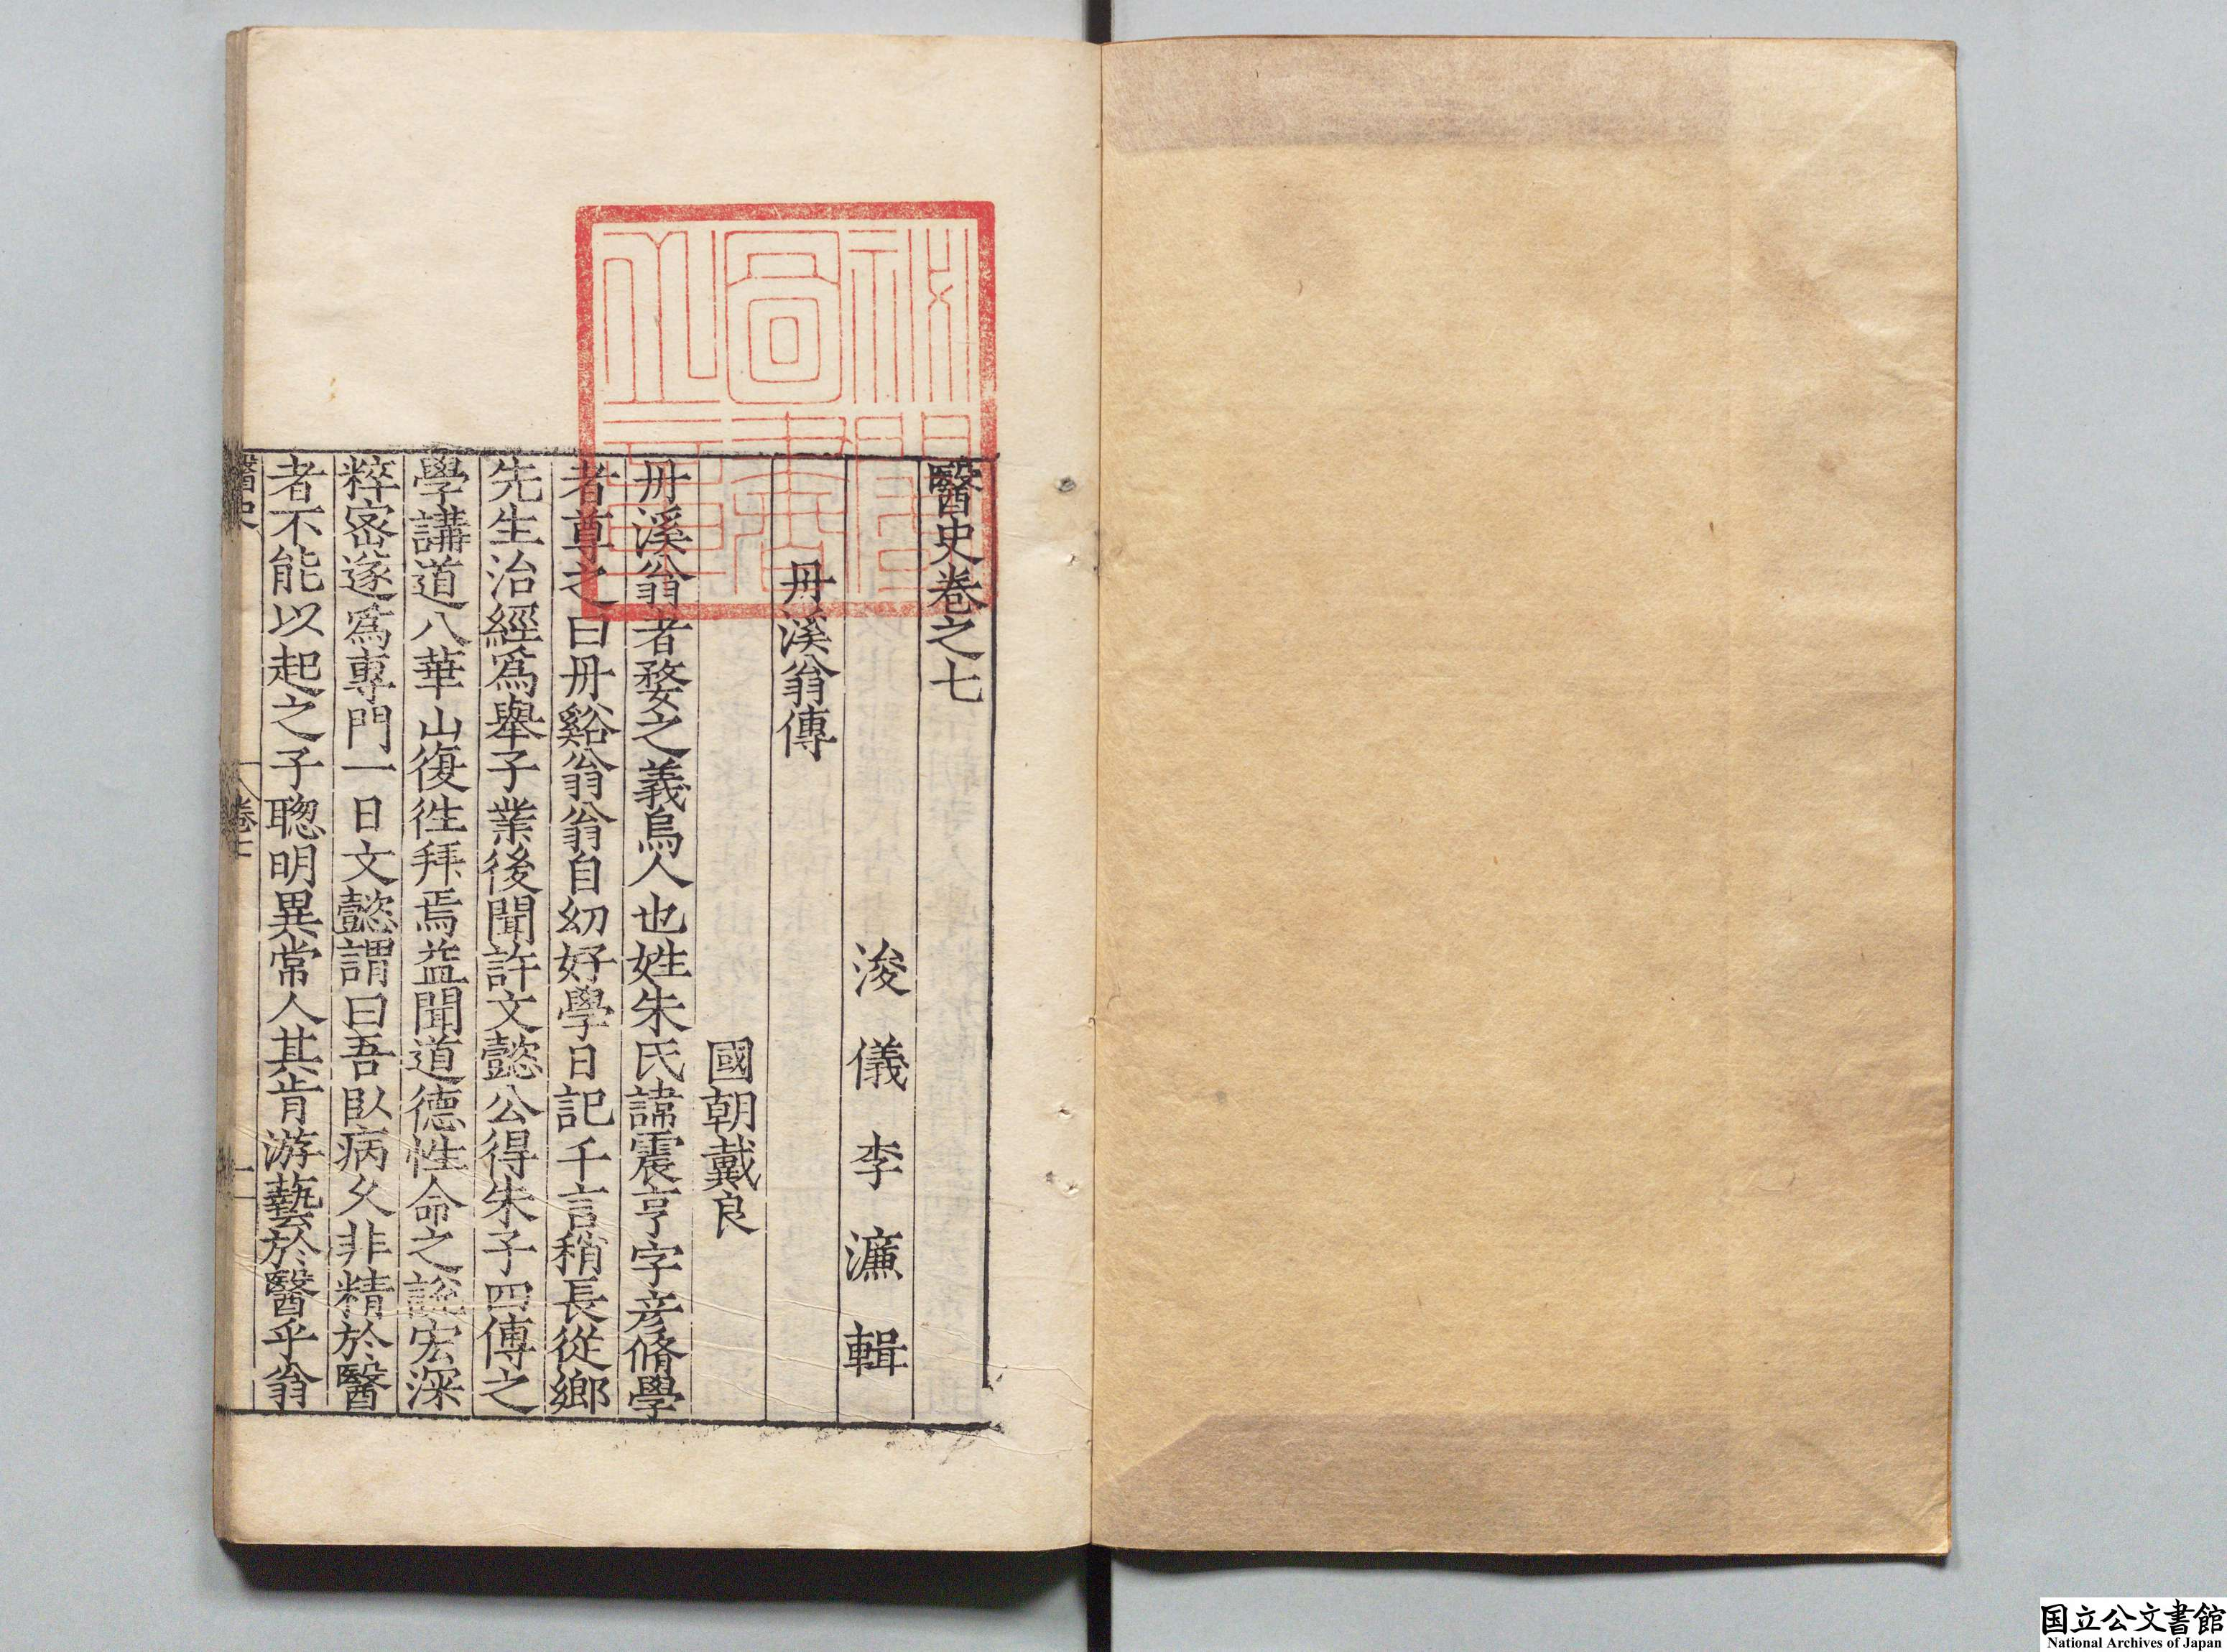 醫史卷之七
浚儀李濂輯
丹溪翁傳
國朝戴良
丹溪翁者婺之義烏人也姓朱氏諱震亨字彦脩學
者尊之曰丹谿翁翁自幼好學日記千言稍長從鄉
先生治經爲舉子業後聞許文懿公得朱子四傳之
學講道八華山復徃拜焉益聞道德性命之說宏深
粹宻遂爲專門一日文懿謂曰吾臥病久非精於醫
者不能以起之子聰明異常人其肯游藝於醫乎翁
醫史
卷七
一
国立公文書館
National Archives of Japan